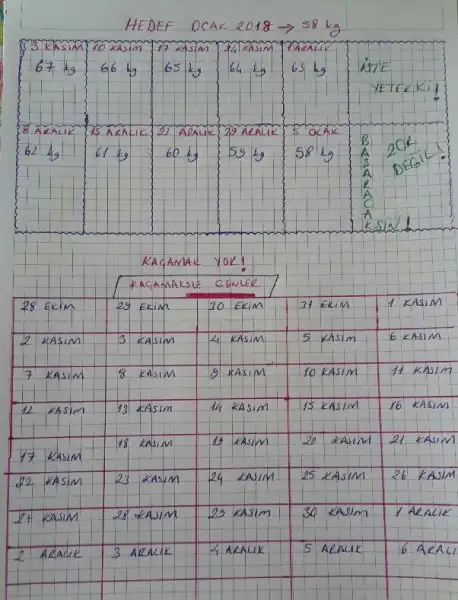 HEDEF OCAK 2018 → 58 kg
3 KASIM 10 KASIM 17 KASIM 24 KASIM 1 ARALIK
67 kg 66 kg 65 kg 64 kg 63 kg İSTE
YETERKİ!
8 ARALIK 15 ARALIK 22 ARALIK 29 ARALIK 5 OCAK
62 kg 61 kg 60 kg 59 kg 58 kg
ZOR
DEĞİL!
BAŞARACAKSIN!
KAÇAMAK YOK!
KAÇAMAKSIZ GÜNLER
28 EKİM 29 EKİM 30 EKİM 31 EKİM 1 KASIM
2 KASIM 3 KASIM 4 KASIM 5 KASIM 6 KASIM
7 KASIM 8 KASIM 9 KASIM 10 KASIM 11 KASIM
12 KASIM 13 KASIM 14 KASIM 15 KASIM 16 KASIM
17 KASIM 18 KASIM 19 KASIM 20 KASIM 21 KASIM
22 KASIM 23 KASIM 24 KASIM 25 KASIM 26 KASIM
27 KASIM 28 KASIM 29 KASIM 30 KASIM 1 ARALIK
2 ARALIK 3 ARALIK 4 ARALIK 5 ARALIK 6 ARALI